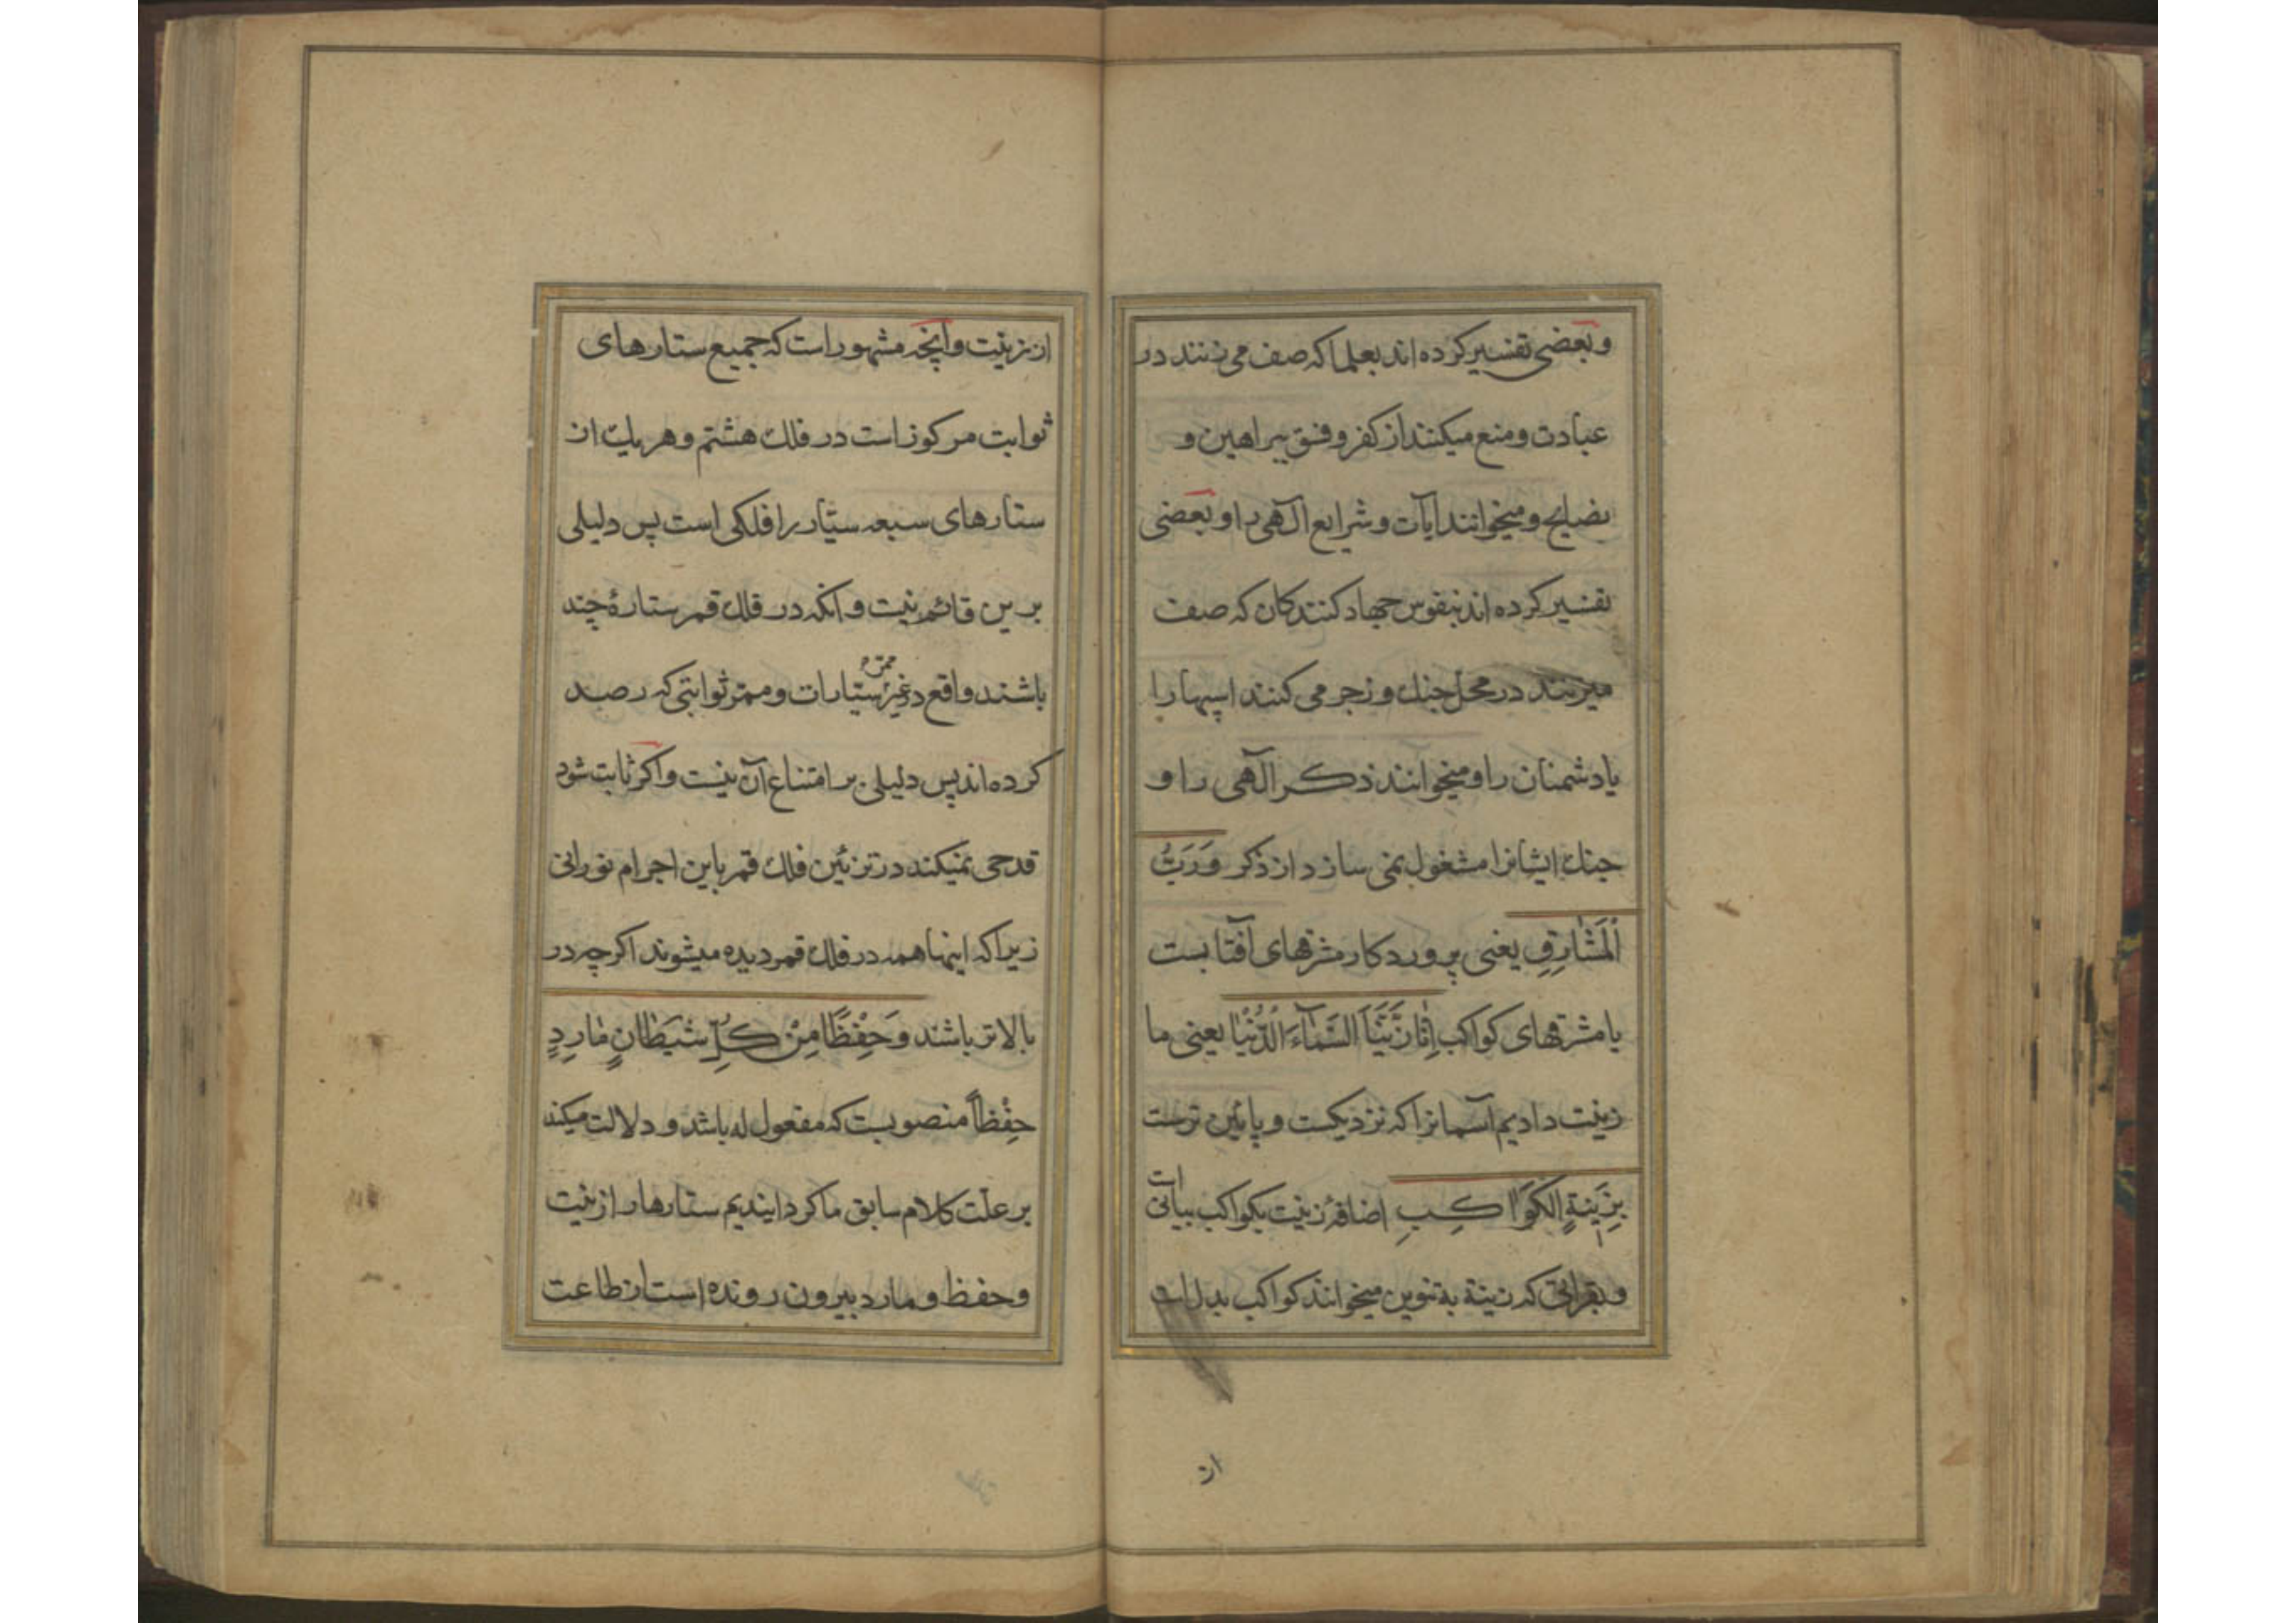 وبعضی تفسیر کرده اند بعلما که صف می زنند در
عبادت و منع میکنند از کفر و فسق ببراهین و
نصایح و میخوانند ایآت و شرایع آلهی را و بعضی
تفسیر کرده اند بنفوس جهاد کنندکان که صف
میزنند در محل جنك و زجر می کنند اسپها را
یا دشمنان را و میخوانند ذکر آلهی را و
جنك ایشانرا مشغول نمی سازد از ذکر وَرَبُّ
اْلَمَشٰارِقِ یعنی پروردکار مشرقهای آفتابست
یا مشرقهای کواکب اِنّٰا زَیَّنَّا السَّمٰآءَ الْدُّنْیٰا یعنی ما
زینت دادیم آسمانرا که نزدیکست و پائین ترست
بِزِیٖنَةٍ الکَوٰاکِبِ اضافهٔ زینت بکواکب بیانی است
و بقرائتی که زینة به تنوین میخوانند کواکب بدل است
از
از زینت و آنچه مشهور است که جمیع ستارهای
ثوابت مرکوز است در فلك هشتم و هر یك از
ستارهای سبعه سیّار را فلکی است پس دلیلی
برین قائم نیست و آنکه در فلك قمر ستارهٔ چند
باشند واقع در غیر ممرّ سیّارات و ممرّ ثوابتی که رصد
کرده اند پس دلیلی بر امتناع آن نیست و اکر ثابت شود
قدحی نمیکند در تزئین فلك قمر باین اجرام نورانی
زیرا که اینها همه در فلك قمر دیده میشوند اکرچه در
بالاتر باشند وَحِفْظًا مِنْ کُلِّ شَیْطٰانٍ مٰارِدٍ
حِفْظاً منصوبست که مفعول له باشد و دلالت میکند
بر علّت کلام سابق ما کردانیدیم ستارها را زینت
و حفظ و مارد بیرون رونده است از طاعت